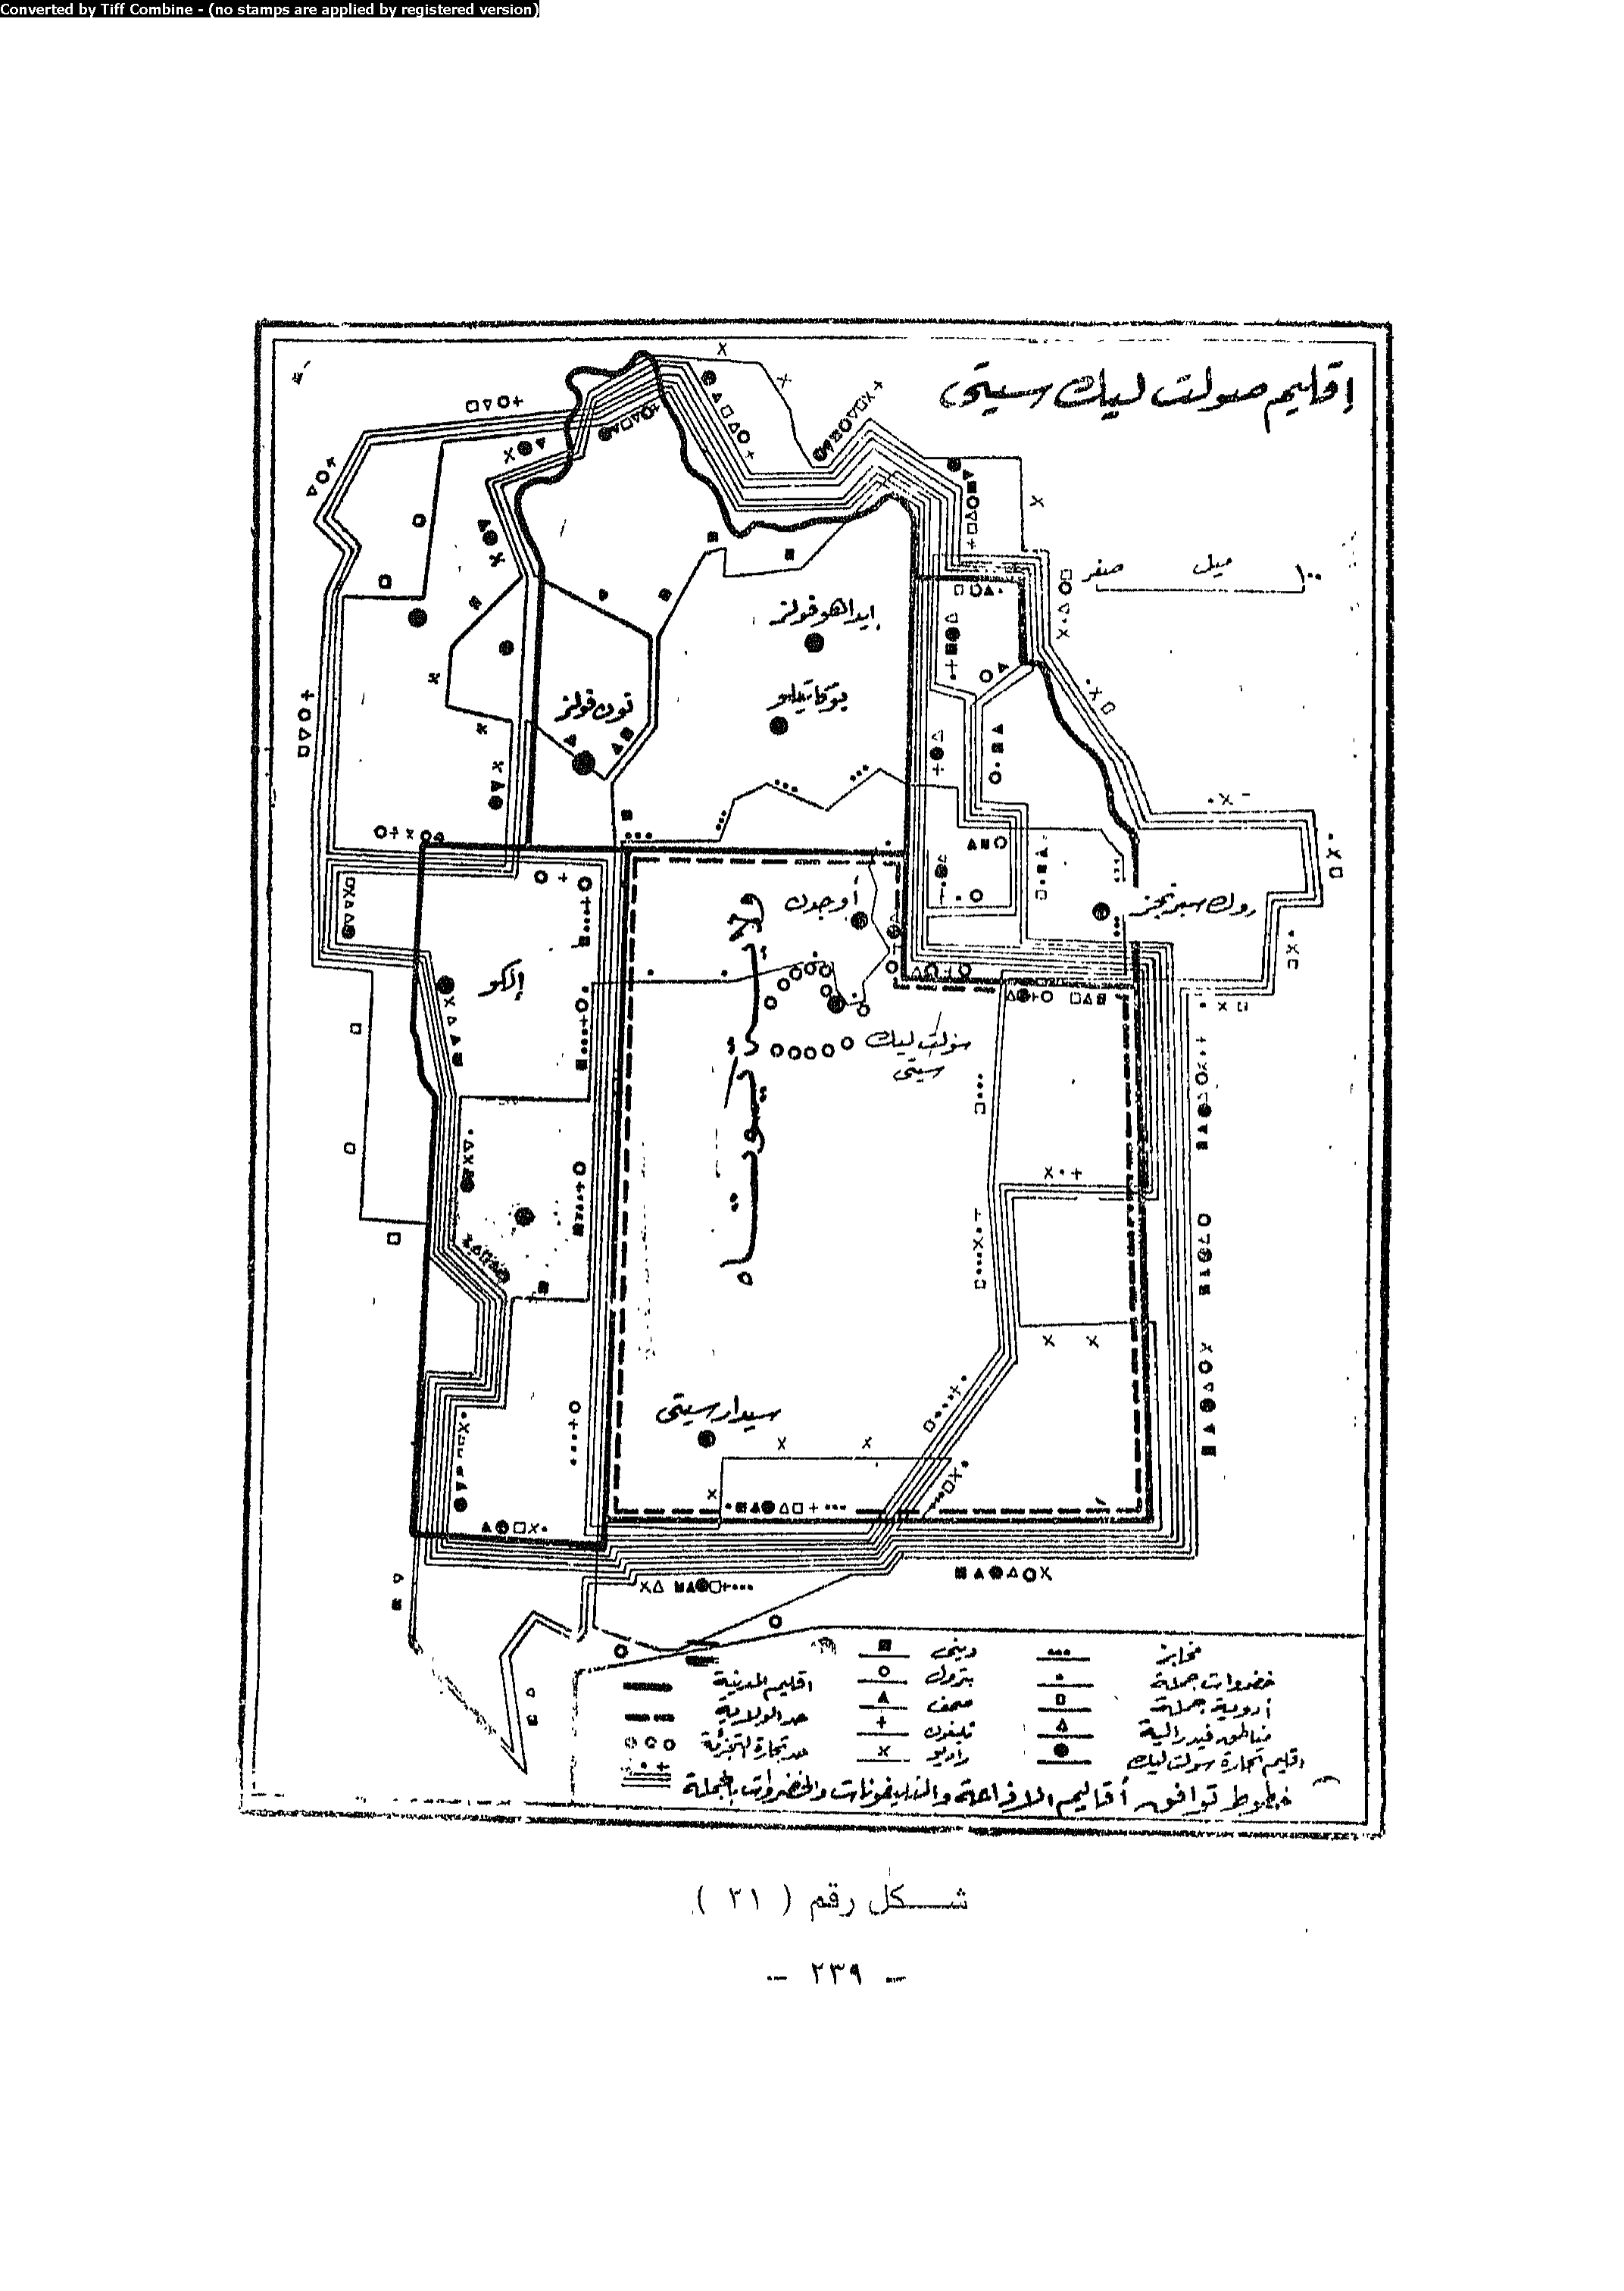 Converted by Tiff Combine - (no stamps are applied by registered version)
إقليم صولت ليك سيتى
١٠٠ ميل صفر
إيداهو فولز
بوكاتيلو
توِن فولز
روك سبرنجز
أوجدن
إلكو
سولت ليك
سيتى
ولاية يوتاه
سيدار سيتى
مخابز
خضروات جملة
أدوية جملة
مناطق فيدرالية
إقليم تجارة سولت ليك
دينى
بترول
صحف
تليفون
راديو
اقليم المدينة
حد الولاية
حد تجارة التجزئة
خطوط توافق أقاليم الاذاعة والتليفونات والخضروات بالجملة
شكل رقم ( ٣١ )
- ٢٣٩ -